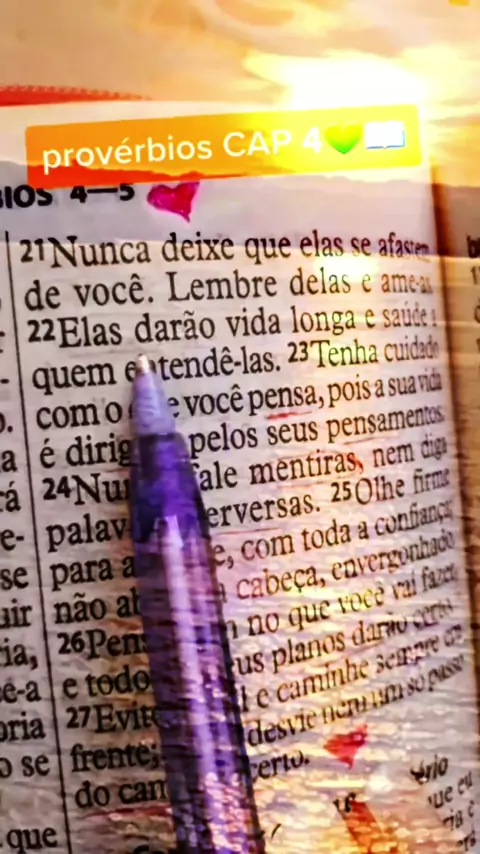 provérbios CAP 4💚📖
BIOS 4—5
21Nunca deixe que elas se afastem
de você. Lembre delas e ame-as.
22Elas darão vida longa e saúde a
quem entendê-las. 23Tenha cuidado
com o você pensa, pois a sua vida
é dirig pelos seus pensamentos.
24Nu fale mentiras, nem diga
palav erversas. 25Olhe firme
para a e, com toda a confiança;
não ab a cabeça, envergonhado
26Pens no que você vai fazer,
e todo us planos darão certo
27Evit l e caminhe sempre em
frente; desvie nem um só passo
do cam certo.